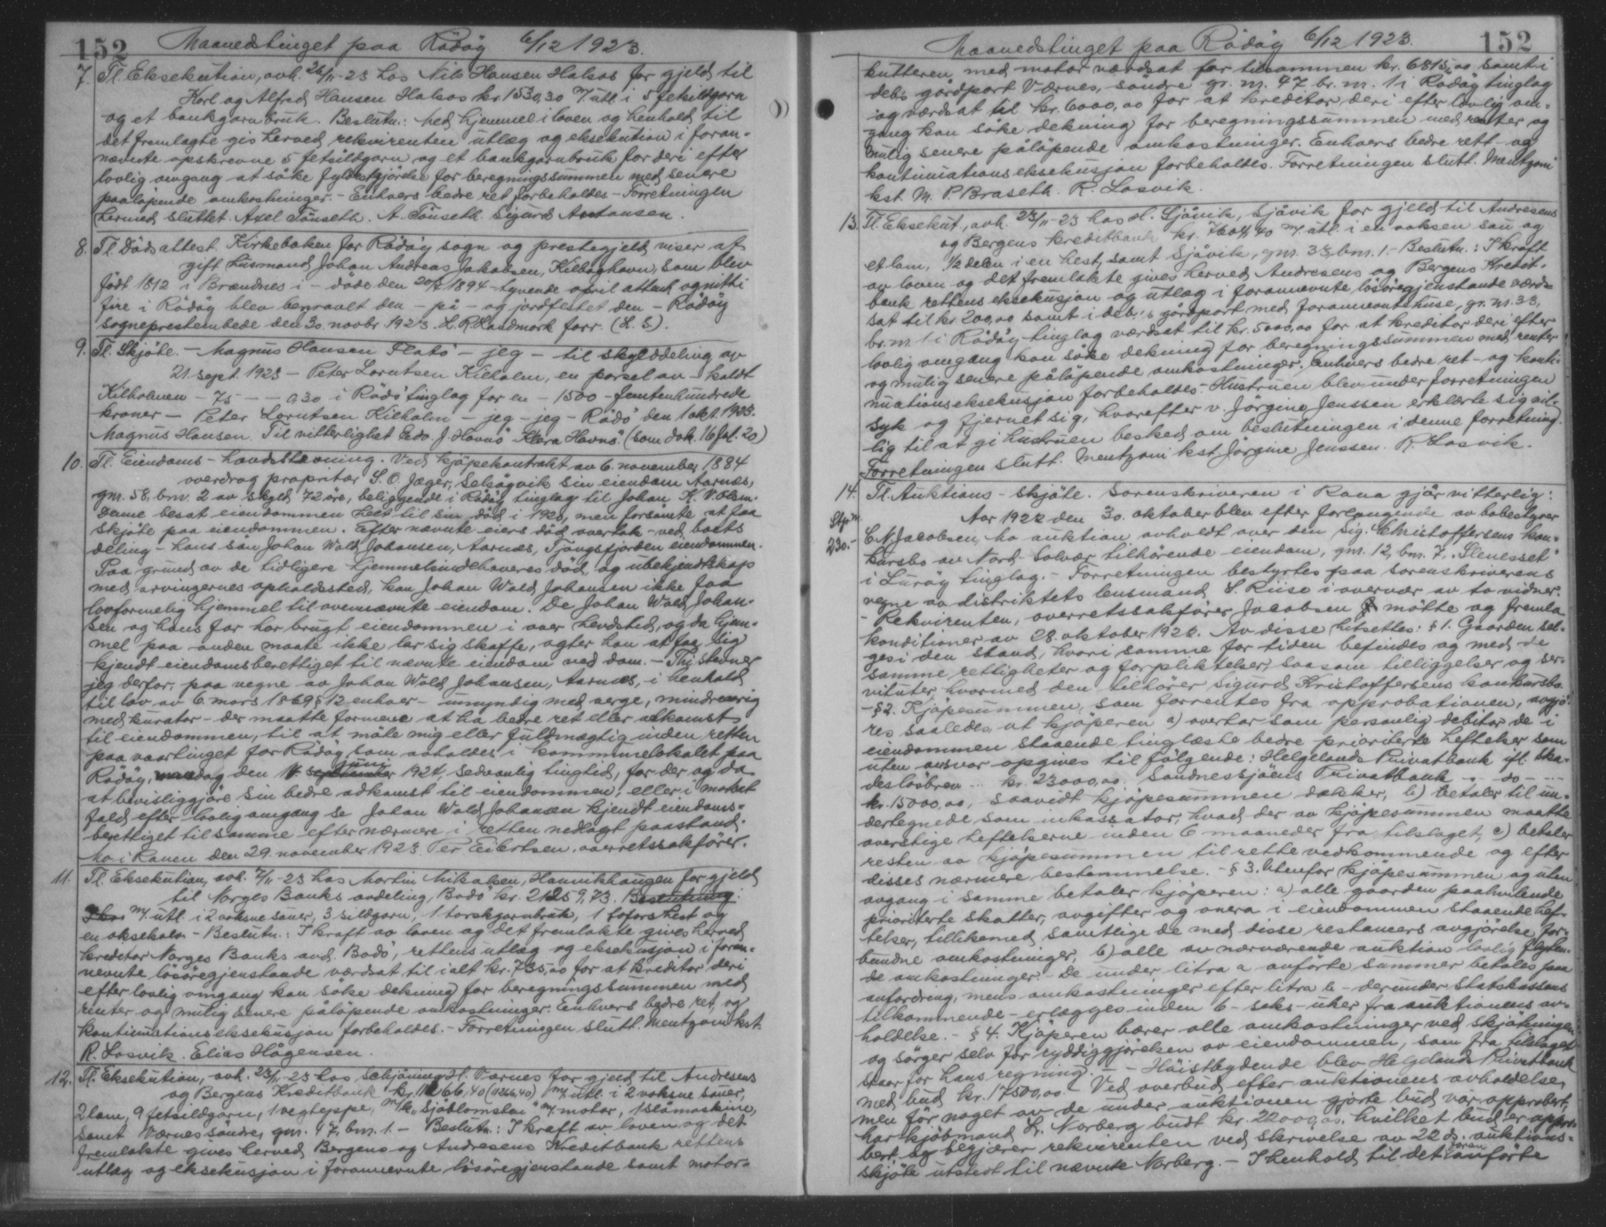 152 Maanedstinget paa Rödöy 6/12 1923.
7. Tl. Eksekution, avh. 26/11-23 hos Nils Hansen Halsos for gjeld til
Karl og Alfred Hansen Halsos kr. 1530,30 m/ utl. i 5 fetsildgarn
og et bankgarnbruk. Beslutn.: Med hjemmel i loven og henhold til
det fremlagte gis herved rekvirenten utlæg og eksekution i foran-
nævnte opskrevne 5 fetsildgarn og et bankgarnbruk for deri efter
lovlig omgang at söke fyldestgjörelse for beregningssummen med senere
paalöpende omkostninger. - Enhvers bedre ret forbeholdes - Forretningen
hermed sluttet. Axel Tönseth. A. Tönseth. Sigurd Antonsen.
8. Tl. Dödsattest. Kirkeboken for Rödöy sogn og prestegjeld viser at
gift husmand Johan Andreas Jakobsen, Kilboghavn, som blev
född 1812 i Brændnes i - döde den 20/4 1894 - tyvende april attenh. og nitti
fire i Rödöy blev begravet den - på - og jordfestet den - Rödöy
sogneprestembede den 30. novbr 1923. H. P. Handmark forr. (L. S.).
9. Tl. Skjöte. - Magnus Hansen Flatö - jeg - til skylddeling av
21 sept. 1923 - Peter Lorntsen Kilholm, en parsel av - kaldt
Kilholmen - 75 - - 0,30 i Rödö tinglag for en - 1500 - femtenhundrede
kroner - Peter Lorntsen Kilholm - jeg - jeg - Rödö den 1 okt. 1923.
Magnus Hansen. Til vitterlighet Edv. J. Havnö Klara Havnö. (som dok. 16 fol. 20)
10. Tl. Eiendoms-hævdstevning. Ved kjöpekontrakt av 6. november 1884
overdrog proprietær S. O. Jæger, Selsøyvik sin eiendom Aarnes,
gnr. 58, bnr. 2 av skyld 72 öre, beliggende i Rödöy tinglag til Johan K. Olsen.
Denne besat eiendommen helt til sin död i 1920, men forsömte at faa
skjöte paa eiendommen. Efter nævnte eiers död overtok - ved boets
deling - hans sön Johan Wold Johansen, Aarnes, Tjongsfjorden eiendommen.
Paa grund av de tidligere hjemmelsindehaveres död og ubekjendtskap
med arvingernes opholdssted, kan Johan Wold Johansen ikke faa
lovformelig hjemmel til ovennævnte eiendom. Da Johan Wold Johan-
sen og hans far har brugt eiendommen i over hævdstid, og da hjem-
mel paa anden maate ikke lar sig skaffe, agter han at faa sig
kjendt eiendomsberettiget til nævnte eiendom ved dom. - Thi stevner
jeg derfor, paa vegne av Johan Wold Johansen, Aarnes, i henhold
til lov av 6. mars 1869 § 12 enhver - umyndig med verge, mindreaarig
med kurator - der maatte formene at ha bedre ret eller adkomst
til eiendommen, til at möte mig eller fuldmægtig inden retten
paa vaartinget for Rödöy som avholdes i kommunelokalet paa
Rödöy, mandag den juni 1924, sedvanlig tingtid, for der og da
at bevisliggjöre sin bedre adkomst til eiendommen, eller i motsat
fald efter lovlig omgang se Johan Wold Johansen kjendt eiendoms-
berettiget til samme efter nærmere i retten nedlagt paastand.
Mo i Ranen den 29. november 1923 Per Eilertsen, overretssakförer.
11. Tl. Eksekution, avh. 7/11-23 hos Martin Mikalsen, Hammkhaugen for gjeld
til Norges Banks avdeling, Bodö kr. 21259,73. Beslutning:
m/ utl. i 2 voksne sauer, 3 sildgarn, 1 torskgarnbruk, 1 hest og
en oksekalv - Beslutn.: I kraft av loven og det fremlakte gives herved
kreditor Norges Banks avd. Bodö, rettens utlæg og eksekusjon i foran-
nevnte lösöregjenstande værdsat til i alt kr. 735,00 for at kreditor deri
efter lovlig omgang kan söke dekning for beregningssummen med
renter og mulig senere pålöpende omkostninger. Enhvers bedre ret og
kontinuationseksekusjon forbeholdes. - Forretningen slutt. Mentzoni kst.
R. Losvik. Elias Hågensen.
12. Tl. Eksekution, avh. 23/11-23 hos Schjöning H. Værnes for gjeld til Andresens
og Bergens Kreditbank kr. m/ utl. i 2 voksne sauer,
2 lam, 9 fetsildgarn, 1 vegteppe, m/k. "Sjöblomsten" m/ motor, 1 slåmaskine,
samt Værnes söndre, gnr. 47, bnr. 1. - Beslutn.: I kraft av loven og det
fremlakte gives herved Bergens og Andresens Kreditbank rettens
utlæg og eksekusjon i forannevnte lösöregjenstande samt motor-
Maanedstinget paa Rödöy 6/12 1923. 152
kutteren med motor værdsat for tilsammen kr. 6815,00 samt i
deb.s gårdpart Værnes söndre gr. nr. 47 br. nr. 1 i Rödöy tinglag
og værdsat til kr. 6000,00 for at kreditor deri efter lovlig om-
gang kan söke dekning for beregningssummen med renter og
mulig senere pålöpende omkostninger. Enhvers bedre rett og
kontinuationseksekusjon forbeholdes. Forretningen slutt. Mentzoni
kst. M. P. Braseth. R. Losvik.
13. Tl. Eksekut., avh. 23/11-23 hos H. Sjåvik, Sjåvik for gjeld til Andresens
og Bergens kreditbank kr. m/ utl. i en voksen sau og
et lam, 1/2 delen i en hest, samt Sjåvik, gnr. 33, bnr. 1. - Beslutn.: I kraft
av loven og det fremlakte gives herved Andresens og Bergens Kredit-
bank rettens eksekusjon og utlæg i forannevnte lösöregjenstande værd-
sat til kr. 200,00 samt i deb.s gårdpart med forannevnte huse, gr. nr. 33,
br. nr. 1 i Rödöy tinglag værdsat til kr. 5000,00 for at kreditor deri efter
lovlig omgang kan söke dekning for beregningssummen med renter
og mulig senere pålöpende omkostninger. Enhvers bedre ret - og konti-
nuationseksekusjon forbeholdes. - Hustruen blev under forretningen
syk og fjernet sig, hvorefter v. Jörgine Jenssen erklærte sig vil-
lig til at gi hustruen besked om beslutningen i denne forretning.
Forretningen slutt. Mentzoni kst. Jörgine Jenssen. R. Losvik.
14. Tl. Auktions-skjöte. Sorenskriveren i Rana gjör vitterlig:
Stp. m. 230.- Aar 1922 den 30. oktober blev efter forlangende av bobestyrer
C. N. Jacobsen, Mo auktion avholdt over den Sig. Christoffersens kon-
kursbo av Nord-Solvær tilhörende eiendom, gnr. 12, bnr. 7. "Stenesset"
i Luröy tinglag. - Forretningen bestyrtes paa sorenskriverens
vegne av distriktets lensmand S. Riise i overvær av to vidner.
- Rekvirenten, overretssakförer Jacobsen mötte og fremla
konditioner av 28. oktober 1922. Av disse hitsettes: § 1. Gaarden sel-
ges i den stand, hvori samme for tiden befindes og med de
samme rettigheter og forpliktelser, saasom tilliggelser og ser-
vituter hvormed den tilhörer Sigurd Kristoffersens konkursbo.
- § 2. Kjöpesummen, som forrentes fra approbationen, avgjö-
res saaledes, at kjöperen a) overtar som personlig debitor de i
eiendommen staaende tinglæste bedre prioriterte heftelser som
uten ansvar opgives til fölgende: Helgelands Privatbank ifl. ska-
deslösbrev... kr. 23000,00. Sandnessjöens Privatbank - do - ...
kr. 15000,00, saavidt kjöpesummen dækker, b) betaler til un-
dertegnede som inkassator, hvad der av kjöpesummen maatte
overstige heftelserne inden 6 maaneder fra tilslaget, c) betaler
resten av kjöpesummen til rette vedkommende og efter
disses nærmere bestemmelse. - § 3. Utenfor kjöpesummen og uten
avgang i samme betaler kjöperen: a) alle gaarden paahvilende
prioriterte skatter, avgifter og onera i eiendommen staaende hef-
telser, tillikemed samtlige de med disse restancers avgjörelse for-
bundne omkostninger, b) alle av nærværende auktion lovlig flyten-
de omkostninger. De under litra a anförte summer betales paa
anfordring, mens omkostninger efter litra b - derunder statskassens
tilkommende - erlægges inden 6 - seks - uker fra auktionens av-
holdelse. - § 4. Kjöperen bærer alle omkostninger ved skjötningen
og sörger selv for ryddiggjörelsen av eiendommen, som fra tilslaget
staar for hans regning. - - Höistbydende blev Helgelands Privatbank
med bud kr. 17500,00. Ved overbud efter auktionens avholdelse,
men för noget av de under auktionen gjorte bud var approbert,
har kjöbmand Norberg budt kr. 22000,00 hvilket bud er appro-
bert, og begjærer rekvirenten ved skrivelse av 22 ds. auktions-
skjöte utstedt til nævnte Norberg. - I henhold til det foran anförte